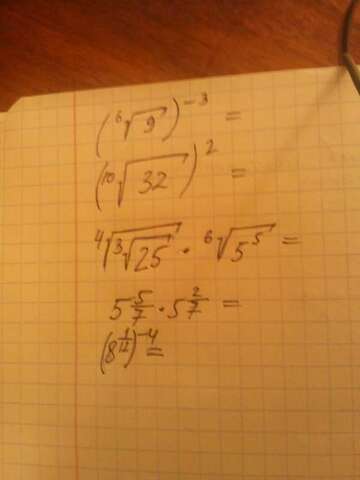 (⁶√9)⁻³ =
(¹⁰√32)² =
⁴√(³√25) · ⁶√(5⁵) =
5^(5/7) · 5^(2/7) =
(8^(1/12))⁻⁴ =